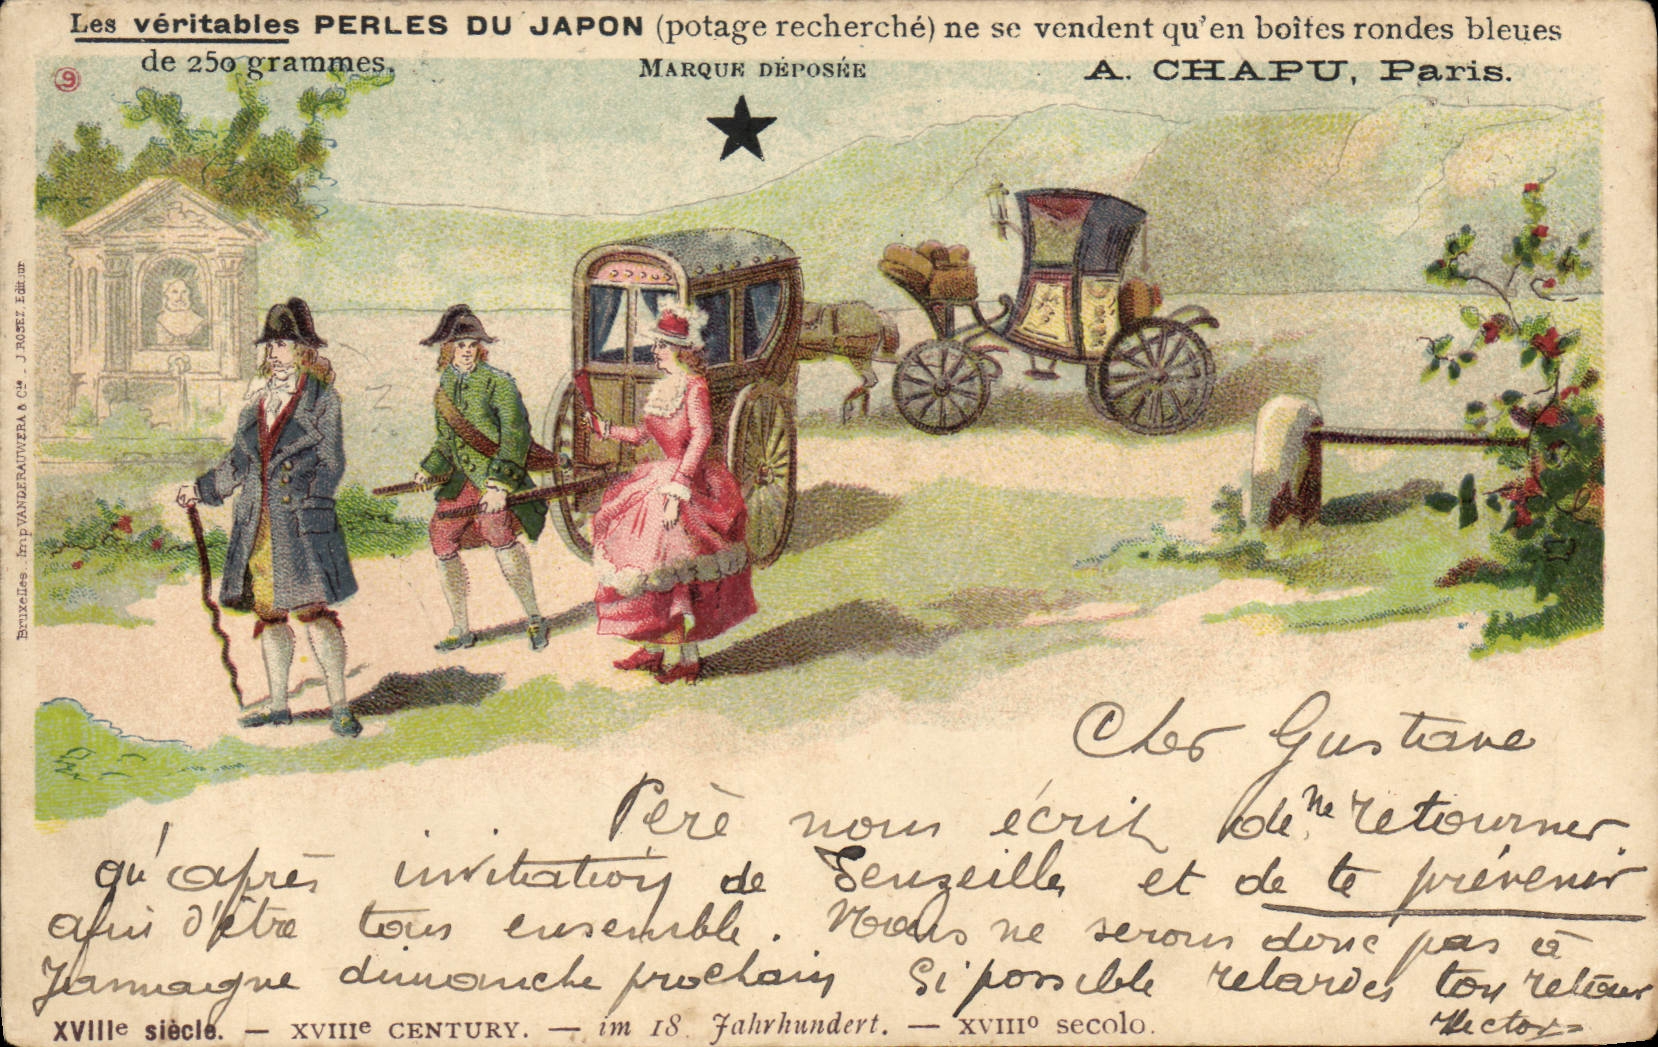 Les véritables PERLES DU JAPON (potage recherché) ne se vendent qu'en boîtes rondes bleues
de 250 grammes. MARQUE DÉPOSÉE A. CHAPU, Paris.
9
Bruxelles. Imp VANDERAUWERA & Cie - J ROZEZ. Editeur
Cher Gustave
Père nous écrit de ne retourner
qu'après invitation de Senzeilles et de te prévenir
afin d'être tous ensemble. Nous ne serons donc pas à
Jamaigne dimanche prochain Si possible retardes ton retour
Hector
XVIIIe siècle. — XVIIIe CENTURY. — im 18. Jahrhundert. — XVIIIo secolo.